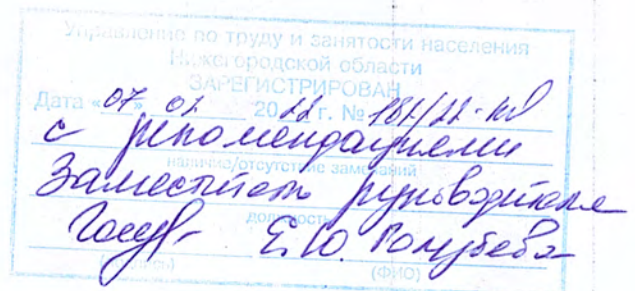 Управление по труду и занятости населения
Нижегородской области
ЗАРЕГИСТРИРОВАН
Дата «07» 02 2022 г. № 182/22-кд
с рекомендациями
наличие/отсутствие замечаний
Заместитель руководителя
должность
Е.Ю. Голубева
(подпись) (ФИО)